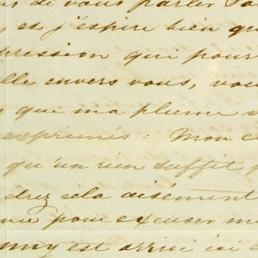 ns de vous parler
y et j'espère bien qu
pression qui pour
lle envers vous, vou
que ma plume
exprimés: Mon c
qu'un rien suffit
drez cela aisément
pour excuser m
est arrivé ici